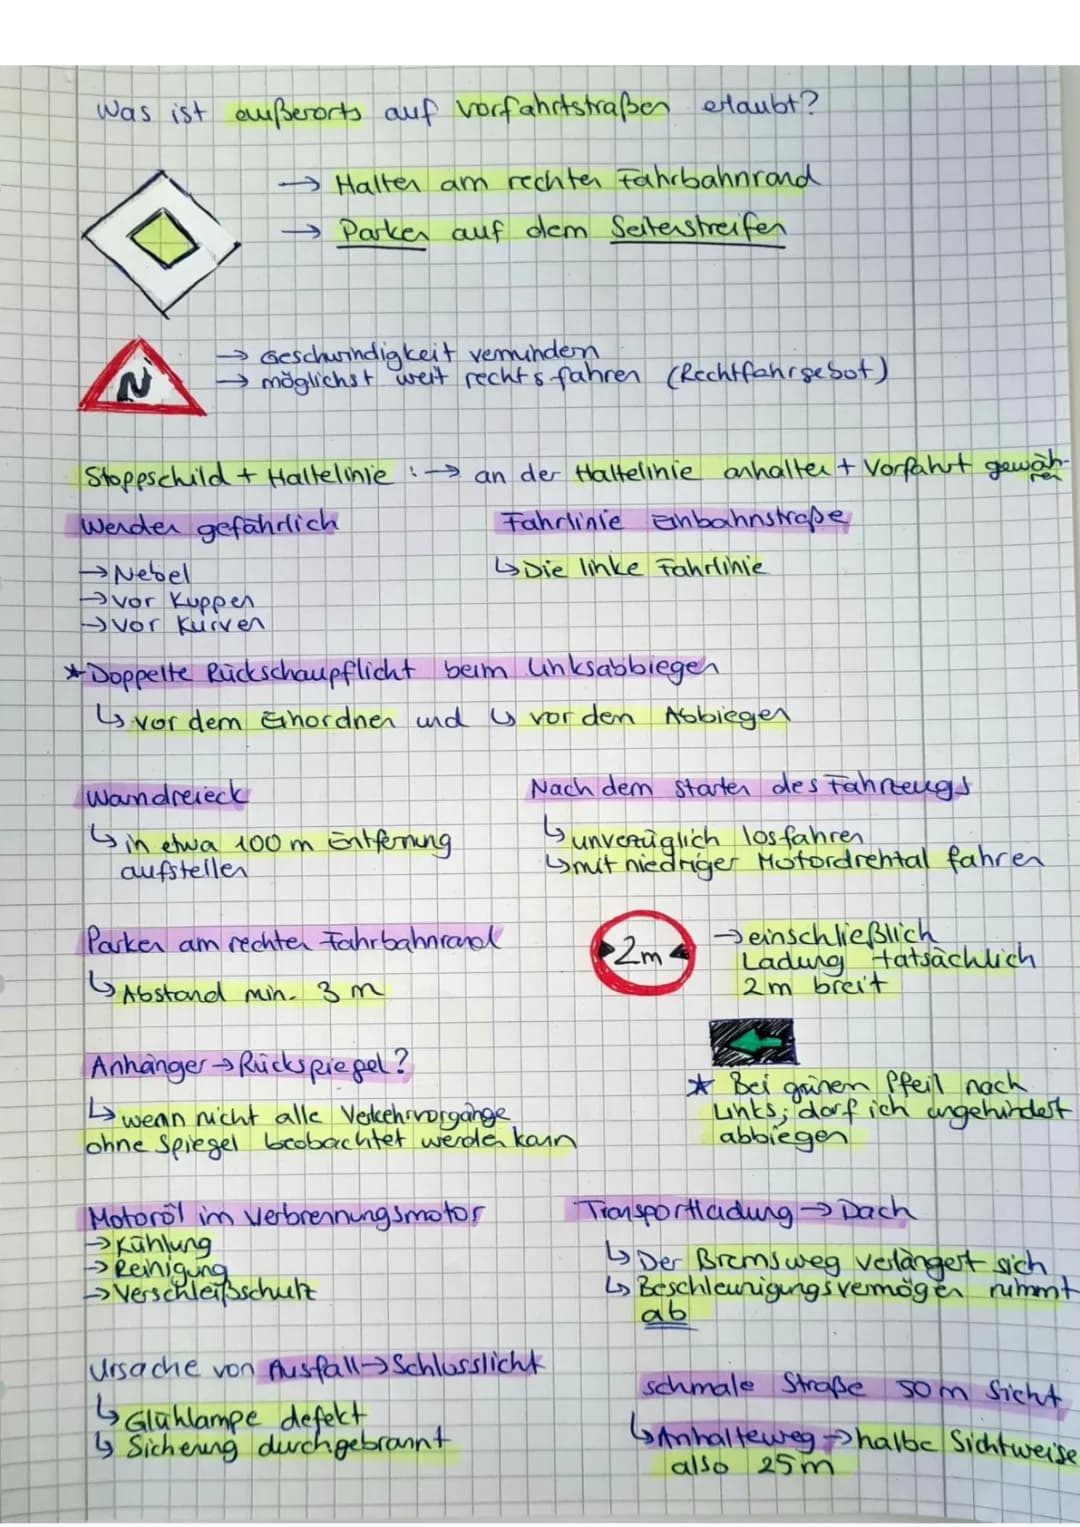 Was ist außerorts auf Vorfahrtstraßen erlaubt?
→ Halten am rechten Fahrbahnrand
→ Parken auf dem Seitenstreifen
→ Geschwindigkeit vermindern
→ möglichst weit rechts fahren (Rechtfahrgebot)
Stoppschild + Haltelinie : → an der Haltelinie anhalten + Vorfahrt gewäh-
ren
Wenden gefährlich
→ Nebel
→ vor Kuppen
→ vor Kurven
Fahrlinie Einbahnstraße
↳ Die linke Fahrlinie
* Doppelte Rückschaupflicht beim Linksabbiegen
↳ vor dem Einordnen und ↳ vor den Abbiegen
Warndreieck
↳ in etwa 100 m Entfernung
aufstellen
Nach dem starten des Fahrzeugs
↳ unverzüglich losfahren
↳ mit niedriger Motordrehzal fahren
Parken am rechten Fahrbahnrand
↳ Abstand min. 3 m
2m
→ einschließlich
Ladung tatsächlich
2m breit
Anhänger → Rückspiegel?
↳ wenn nicht alle Verkehrvorgänge
ohne Spiegel beobachtet werden kann
* Bei grünem Pfeil nach
Links, darf ich ungehindert
abbiegen
Motoröl im Verbrennungsmotor
→ Kühlung
→ Reinigung
→ Verschleißschutz
Transportladung → Dach
↳ Der Bremsweg verlängert sich
↳ Beschleunigungsvermögen nimmt
ab
Ursache von Ausfall → Schlusslicht
↳ Glühlampe defekt
↳ Sicherung durchgebrannt
schmale Straße 50m Sicht
↳ Anhalteweg → halbe Sichtweise
also 25m